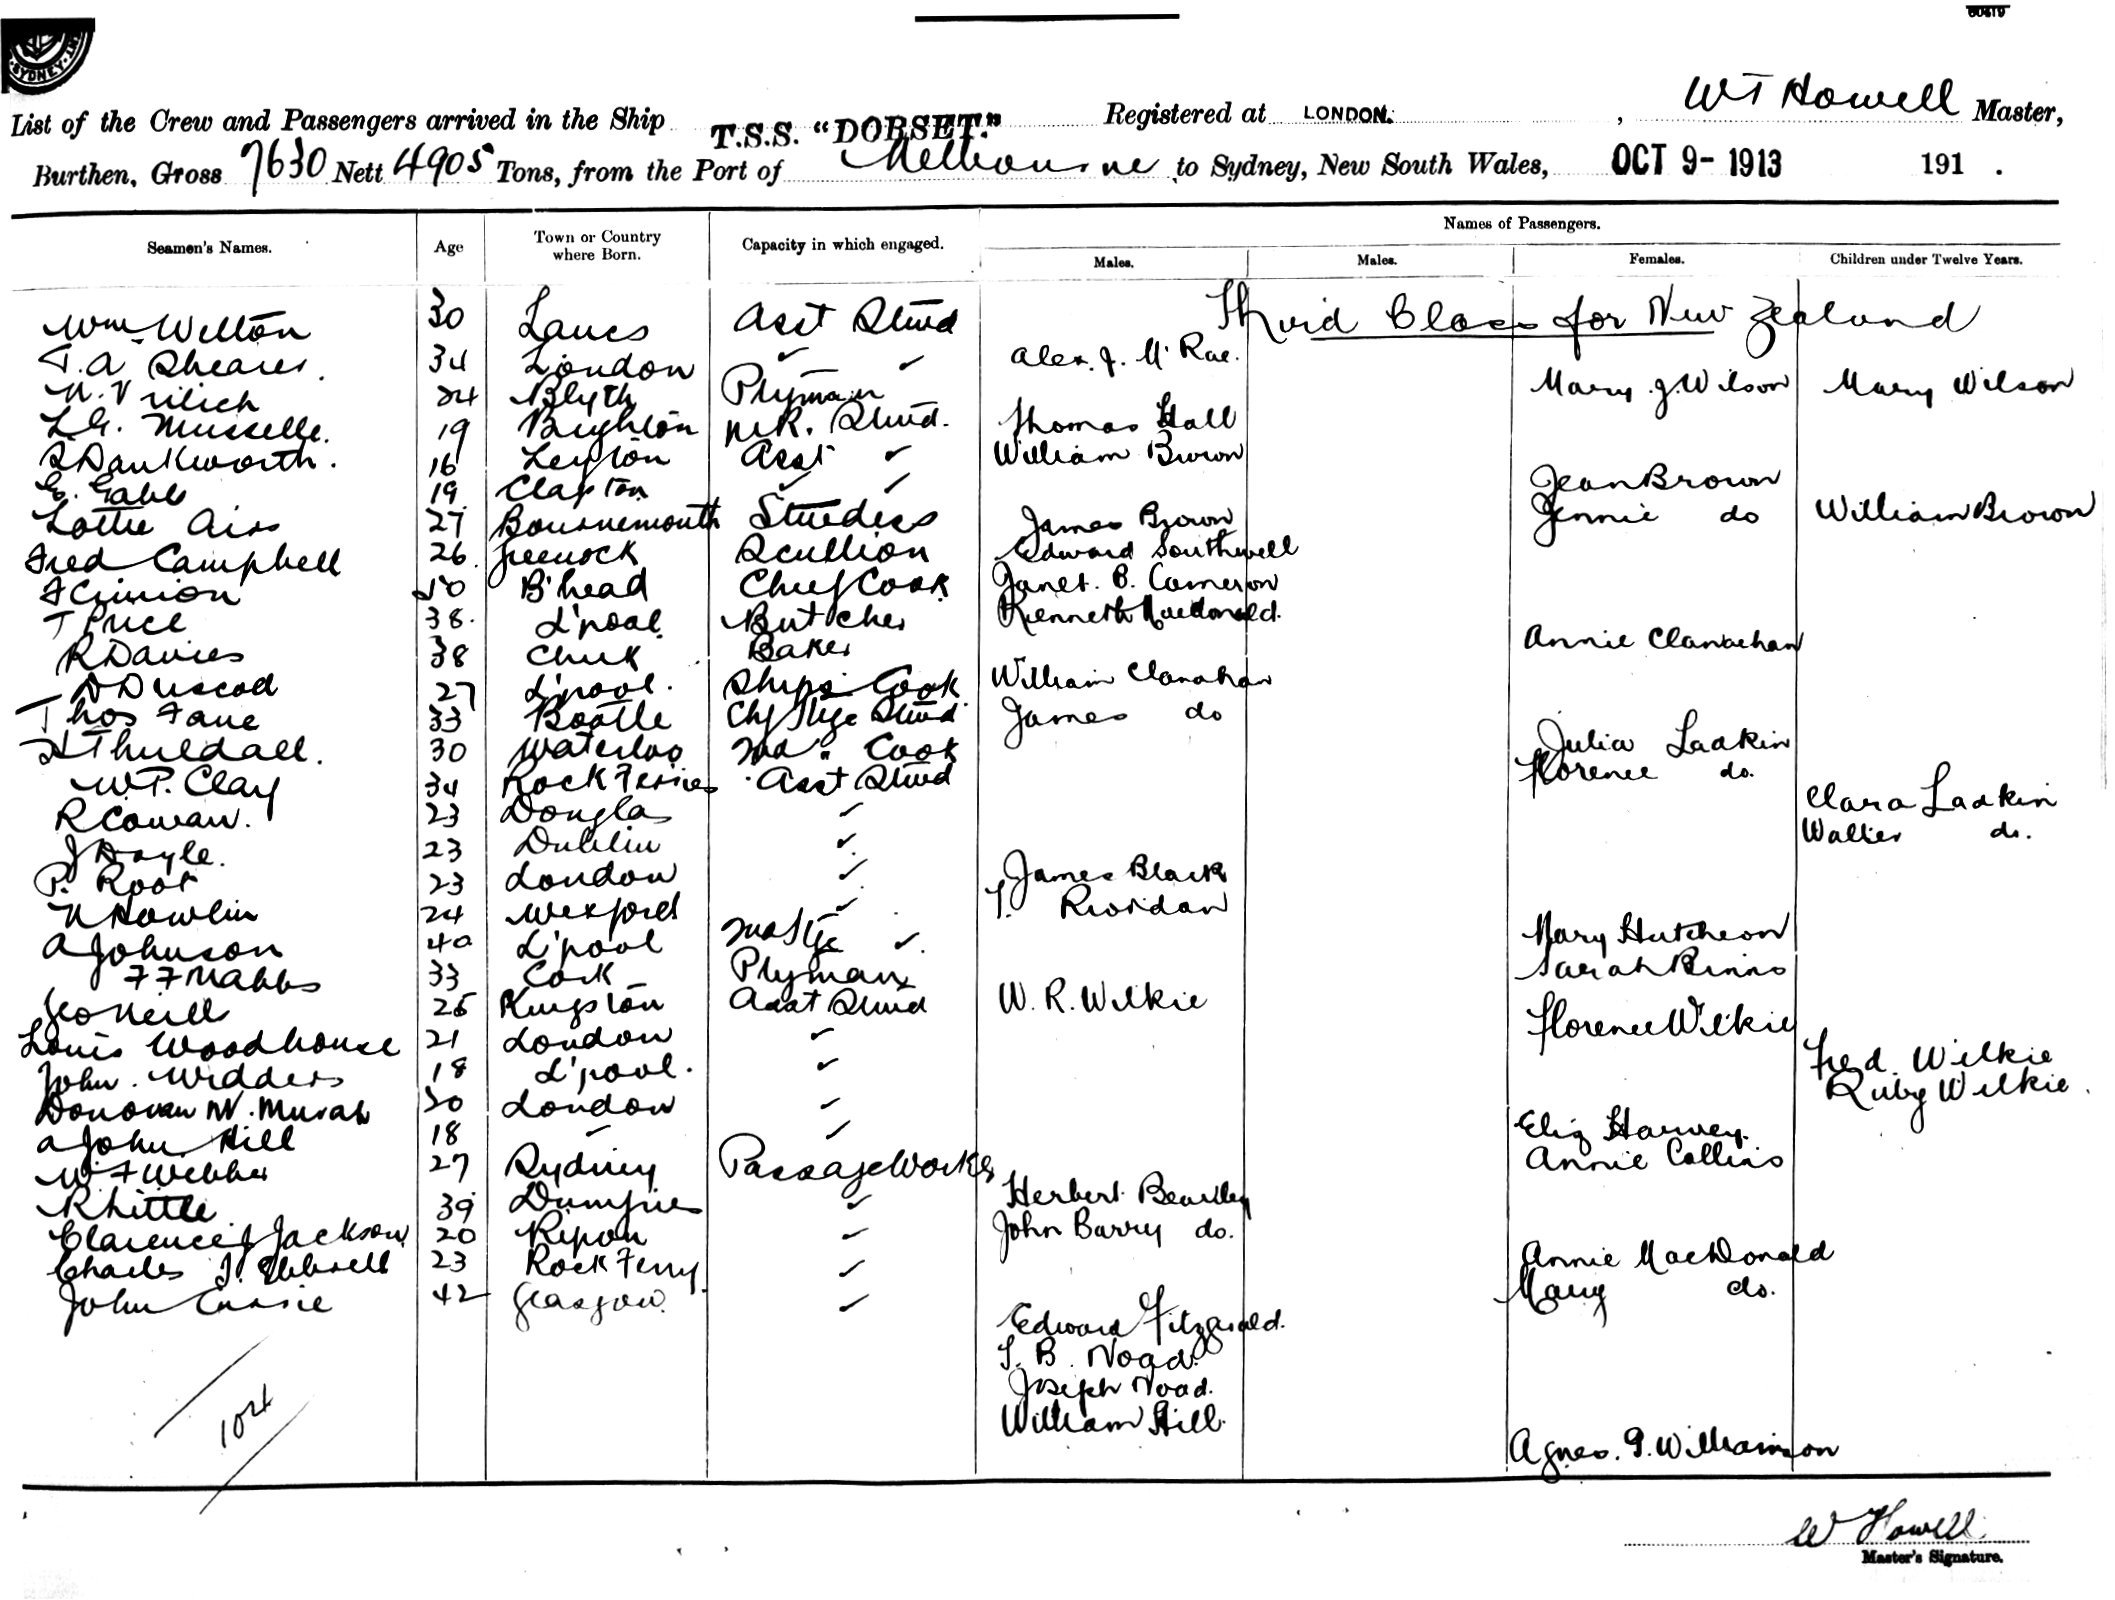 60419
SYDNEY
List of the Crew and Passengers arrived in the Ship T.S.S. "DORSET." Registered at LONDON. , W T Howell Master,
Burthen, Gross 7630 Nett 4905 Tons, from the Port of Melbourne to Sydney, New South Wales, OCT 9- 1913 191 .
Names of Passengers.
Seamen's Names. Age Town or Country where Born. Capacity in which engaged. Males. Males. Females. Children under Twelve Years.
Third Class for New Zealand
Wm Welton 30 Lancs Asst Stwd
T. A Sheares. 34 London ✓ ✓ Alex. J. McRae.
N. 24 Blyth Plyman Mary J. Wilson Mary Wilson
L.G. Musselle. 19 Brighton M.R. Stwd. Thomas Hall
S Dankworth. 16 Leyton Asst ✓ William Brown
G. Gabb 19 Clapton ✓ ✓ Jean Brown
Lottie Airs 27 Bournemouth Stwdess James Brown Jennie do William Brown
Fred Campbell 26 Greenock Scullion Edward Southwell
F Cinnion 50 B'head Chief Cook Janet. B. Cameron
T Price 38. L'pool Butcher Kenneth Macdonald.
R Davies 38 Chirk Baker Annie Clanachan
D Driscoll 27 L'pool. Ships Cook William Clanahan
Thos Fane 33 Bootle Chf Stge Stwd James do
H Thuldall. 30 Waterloo 2nd " Cook Julia Ladkin
W.P. Clay 34 Rock Ferries Asst Stwd Florence do.
R Cowan. 23 Douglas ✓ Clara Ladkin
J Doyle. 23 Dublin ✓ Walter do.
P. Root 23 London ✓ James Black
N Howlin 24 Wexford ✓ T. Riordan
A Johnson 40 L'pool Stge ✓ Mary Hutcheon
F F Mabbs 33 Cork Plyman Sarah Binns
Geo Neill 25 Kingston Asst Stwd W. R. Wilkie Florence Wilkie
Louis Woodhouse 21 London ✓
John. Widders 18 L'pool. ✓ Fred. Wilkie
Donovan W. Murah 30 London ✓ Ruby Wilkie.
A John Hill 18 ✓ ✓ Eliz Harvey.
W F Webber 27 Sydney Passage Worker Annie Collins
R Little 39 Dumfries ✓ Herbert Beardley
Clarence J Jackson 20 Ripon ✓ John Barry do.
Charles J. 23 Rock Ferry. ✓ Annie MacDonald
John Cassie 42 Glasgow ✓ Mary do.
Edward Fitzgerald.
T. B. Noad.
Joseph Noad.
William Hill.
104
Agnes. G. Williamson
W Howell
Master's Signature.